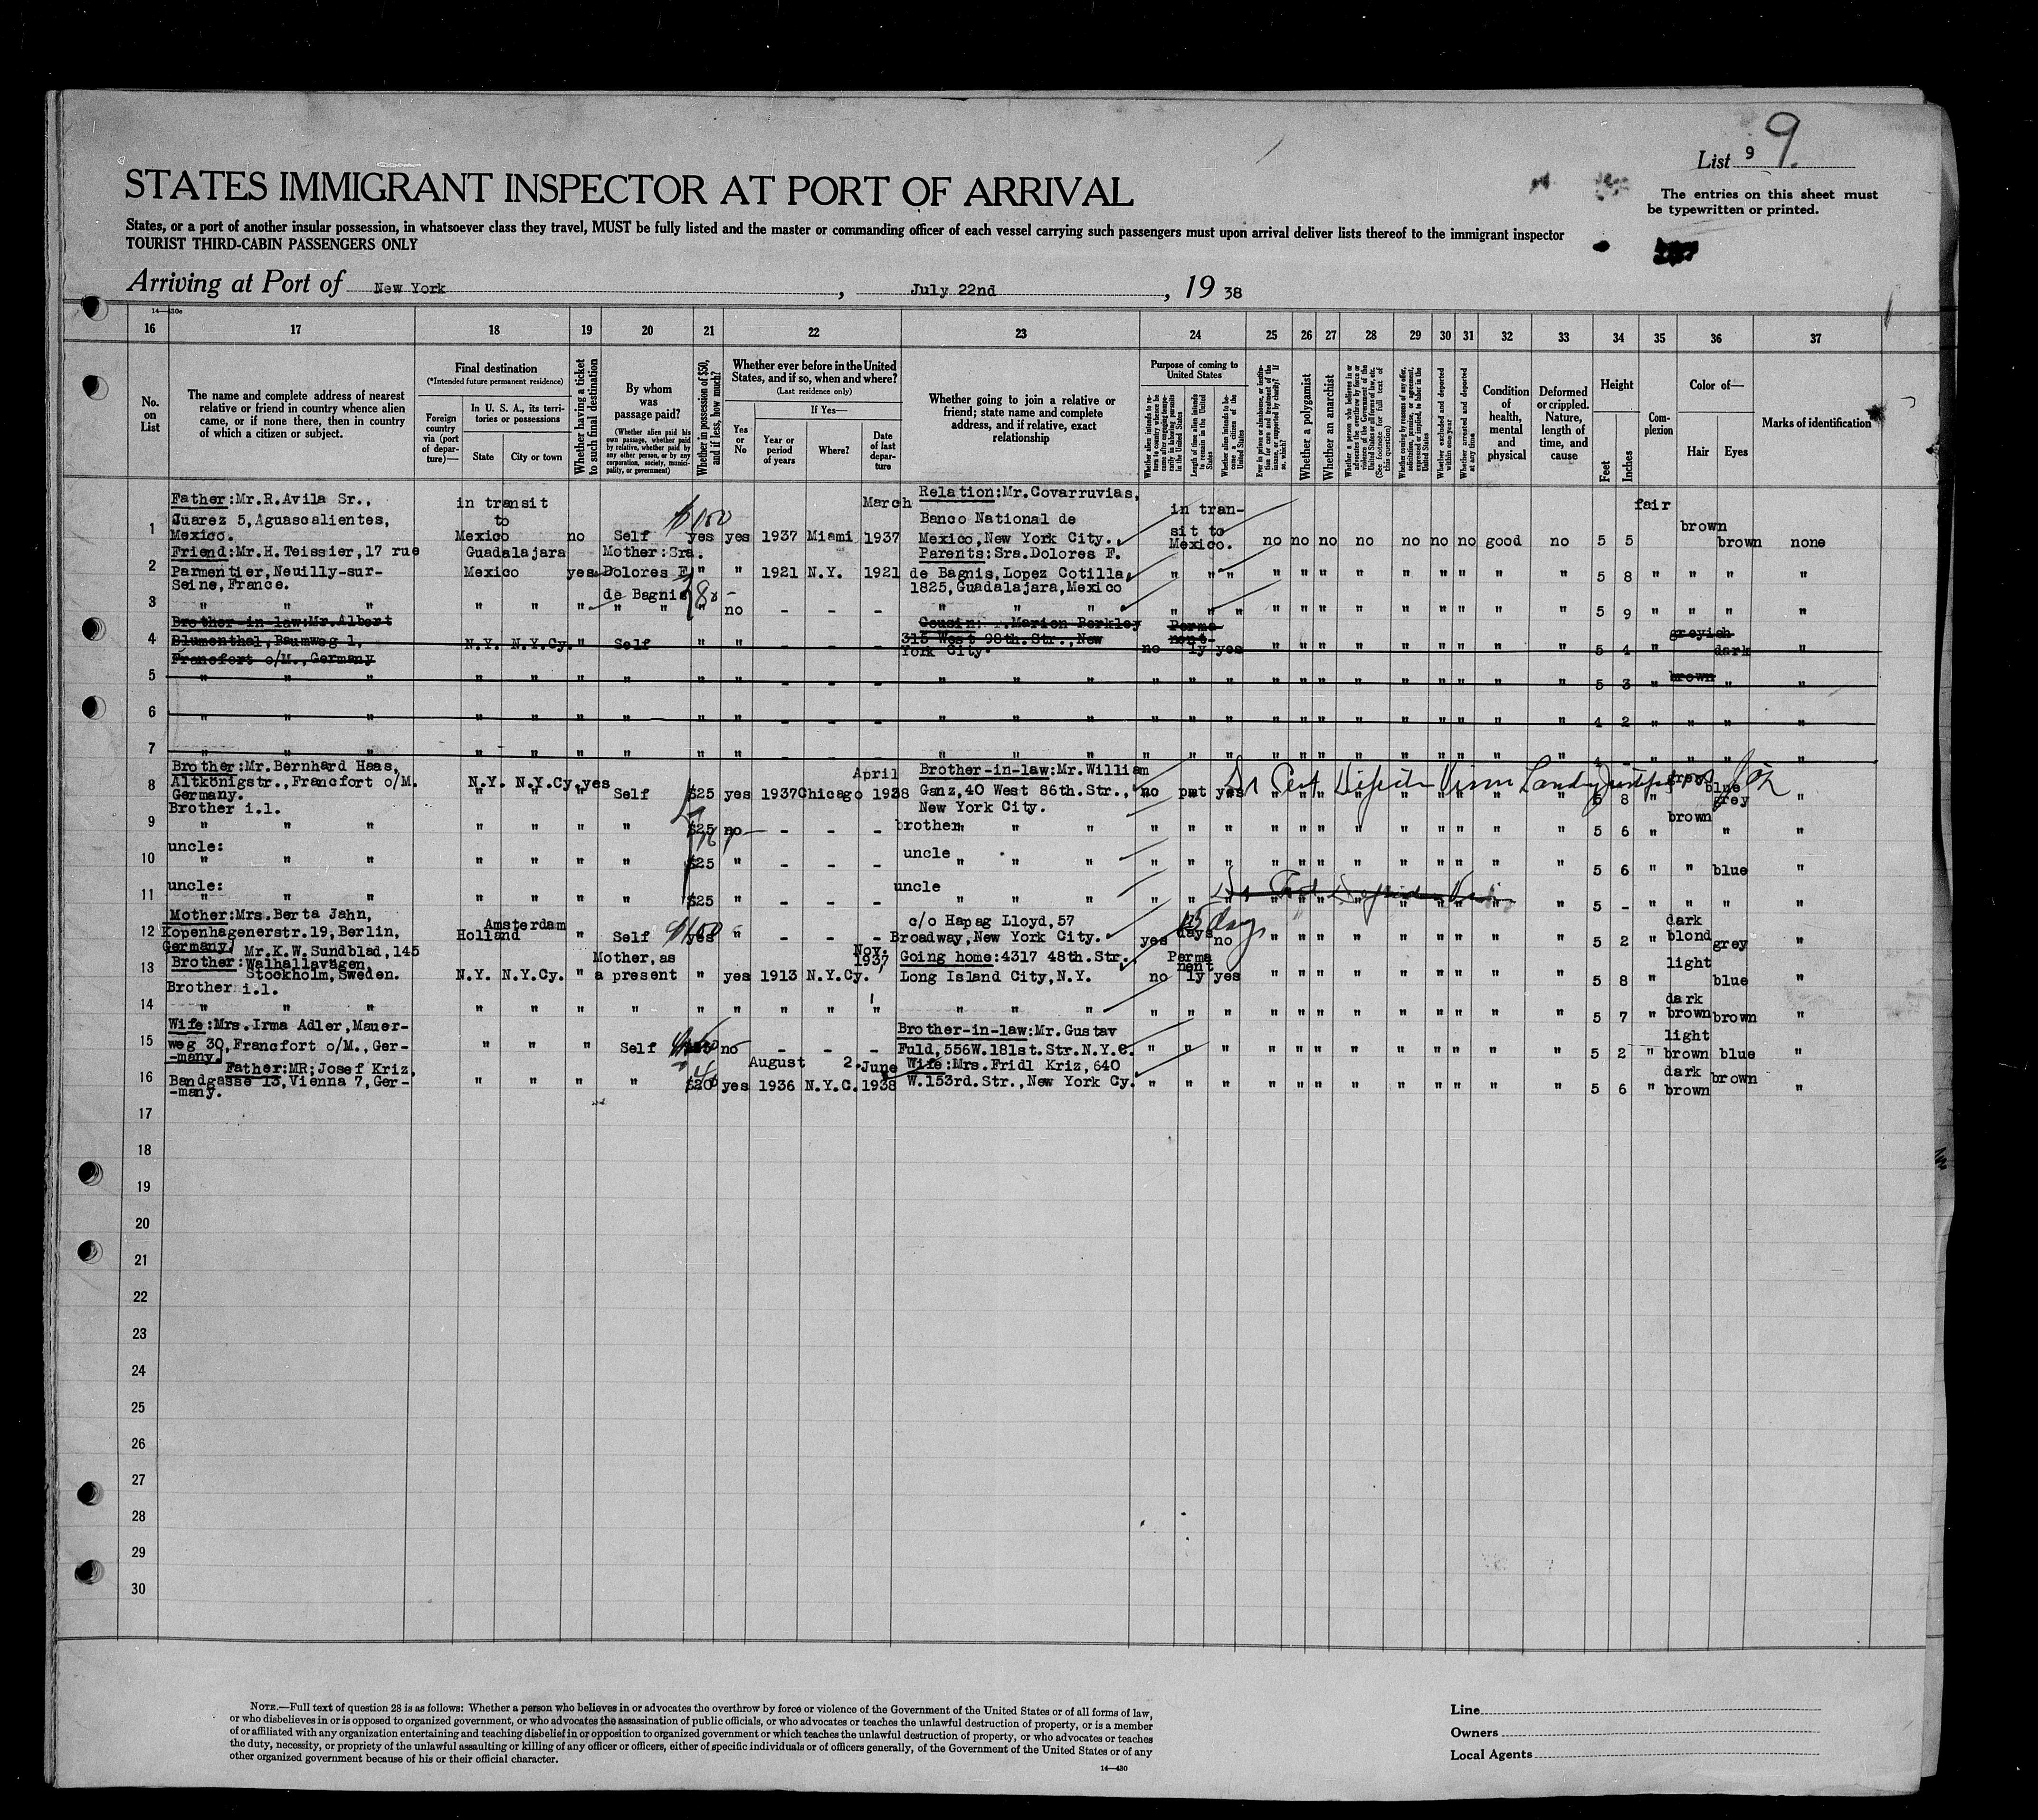 List 9 9.
STATES IMMIGRANT INSPECTOR AT PORT OF ARRIVAL
The entries on this sheet must
be typewritten or printed.
States, or a port of another insular possession, in whatsoever class they travel, MUST be fully listed and the master or commanding officer of each vessel carrying such passengers must upon arrival deliver lists thereof to the immigrant inspector
TOURIST THIRD-CABIN PASSENGERS ONLY
Arriving at Port of New York, July 22nd, 19 38
16 17 18 19 20 21 22 23 24 25 26 27 28 29 30 31 32 33 34 35 36 37
No. on List
The name and complete address of nearest
relative or friend in country whence alien
came, or if none there, then in country
of which a citizen or subject.
Final destination
(*Intended future permanent residence)
Foreign country via (port of departure)—
In U. S. A., its territories or possessions
State
City or town
Whether having a ticket to such final destination
By whom was passage paid?
(Whether alien paid his own passage, whether paid by relative, whether paid by any other person, or by any corporation, society, municipality, or government)
Whether in possession of $50, and if less, how much?
Whether ever before in the United States, and if so, when and where?
(Last residence only)
Yes or No
If Yes—
Year or period of years
Where?
Date of last departure
Whether going to join a relative or
friend; state name and complete
address, and if relative, exact
relationship
Purpose of coming to United States
Whether a polygamist
Whether an anarchist
Whether excluded and deported within one year
Whether arrested and deported at any time
Condition of health, mental and physical
Deformed or crippled. Nature, length of time, and cause
Height
Feet
Inches
Complexion
Color of—
Hair
Eyes
Marks of identification
Father:Mr.R.Avila Sr., in transit March Relation:Mr.Covarruvias, in tran- fair
Juarez 5,Aguascalientes, to Banco National de sit to brown
1 Mexico. Mexico no Self yes yes 1937 Miami 1937 Mexico,New York City. Mexico. no no no no no no no good no 5 5 brown none
Friend:Mr.H.Teissier,17 rue Guadalajara Mother:Sra. Parents:Sra.Dolores F.
2 Parmentier,Neuilly-sur- Mexico yes Dolores F. " " 1921 N.Y. 1921 de Bagnis,Lopez Cotilla, " " " " " " " " " " " " 5 8 " " " "
Seine,France. de Bagnis 1825,Guadalajara,Mexico
3 " " " " " " " " " no - - - " " " " " " " " " " " " " " " 5 9 " " " "
Brother-in-law:Mr.Albert Cousin: Marion Perkley Perma
4 Blumenthal,Baumweg 1, N.Y. N.Y.Cy. " Self " " - - - 315 West 98th.Str.,New nent- greyish
Francfort o/M.,Germany York City. no ly yes " " " " " " " " " 5 4 " dark "
5 " " " " " " " " " - - - " " " " " " " " " " " " " " " 5 3 " brown " "
6 " " " " " " " " " - - - " " " " " " " " " " " " " " " 4 2 " " " "
7 " " " " " " " " " - - - " " " " " " " " " " " " " " " 4 - " " " "
Brother:Mr.Bernhard Haas, April Brother-in-law:Mr.William
8 Altkönigstr.,Francfort o/M. N.Y. N.Y.Cy. yes Self $25 yes 1937 Chicago 1938 Ganz,40 West 86th.Str., no pmt yes " " " " " " " " " 5 8 " grey blue "
Germany. New York City. grey
Brother i.l. brown
9 " " " " " " " $25 no - - - brother " " " " " " " " " " " " " " " 5 6 " " "
uncle: uncle
10 " " " " " " " $25 " - - - " " " " " " " " " " " " " " " 5 6 " " blue "
uncle: uncle
11 " " " " " " " $25 " - - - " " " " " " " " " " " " " " " 5 - " " " "
Mother:Mrs.Berta Jahn, Amsterdam c/o Hapag Lloyd,57 dark
12 Kopenhagenerstr.19,Berlin, Holland " Self yes " - - - Broadway,New York City. yes days no " " " " " " " " " 5 2 " blond grey "
Germany. Mr.K.W.Sundblad,145 Mother,as Nov. Going home:4317 48th.Str. Perma
13 Brother:Walhallavägen, 1937 nent light
Stockholm,Sweden. N.Y. N.Y.Cy. " a present " yes 1913 N.Y.Cy. Long Island City,N.Y. no ly yes " " " " " " " " " 5 8 " blue "
Brother i.l. dark
14 " " " " " " " " " " " " " " " " " " " " " " " " " " " " 5 7 " brown brown "
Wife:Mrs.Irma Adler,Mauer- Brother-in-law:Mr.Gustav light
15 weg 30,Francfort o/M.,Ger- " " " Self no - - - Fuld,556W.181st.Str.N.Y.C. " " " " " " " " " " " " 5 2 " brown blue "
-many.
Father:MR;Josef Kriz, August 2.June Wife:Mrs.Fridl Kriz,640 dark
16 Bandgasse 13,Vienna 7,Ger- " " " " $20 yes 1936 N.Y.C. 1938 W.153rd.Str.,New York Cy. " " " " " " " " " " " " 5 6 " brown brown "
-many.
17
18
19
20
21
22
23
24
25
26
27
28
29
30
NOTE.—Full text of question 28 is as follows: Whether a person who believes in or advocates the overthrow by force or violence of the Government of the United States or of all forms of law,
or who disbelieves in or is opposed to organized government, or who advocates the assassination of public officials, or who advocates or teaches the unlawful destruction of property, or is a member
of or affiliated with any organization entertaining and teaching disbelief in or opposition to organized government or which teaches the unlawful destruction of property, or who advocates or teaches
the duty, necessity, or propriety of the unlawful assaulting or killing of any officer or officers, either of specific individuals or of officers generally, of the Government of the United States or of any
other organized government because of his or their official character.
14—430
Line
Owners
Local Agents